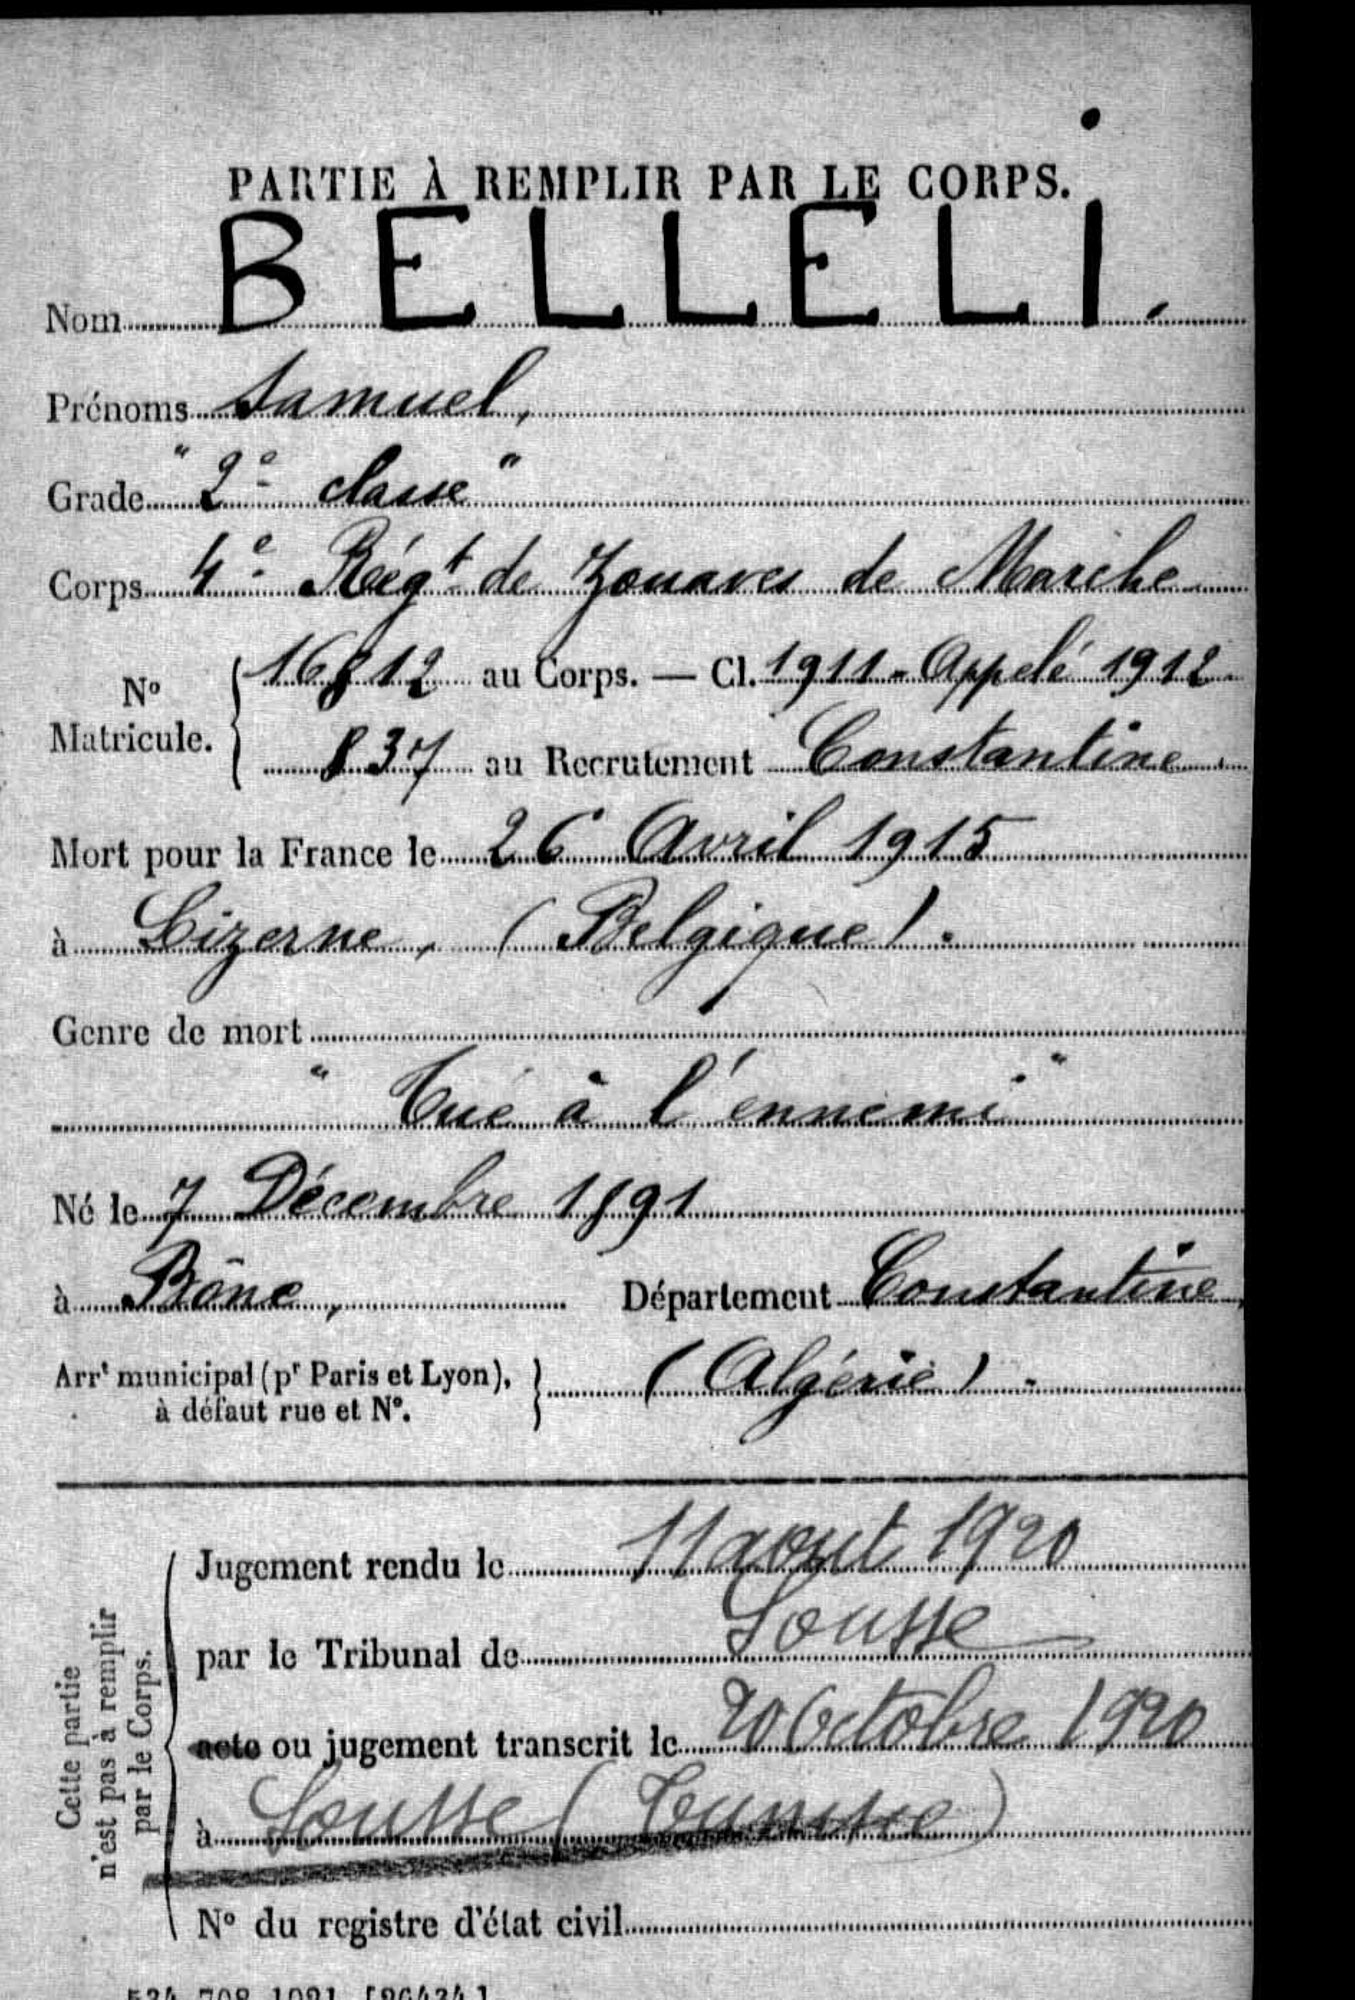 PARTIE À REMPLIR PAR LE CORPS.
Nom BELLELI.
Prénoms Samuel,
Grade "2e classe"
Corps 4e Régt de Zouaves de Marche
No Matricule. { 16812 au Corps. — Cl. 1911 - Appelé 1912.
837 au Recrutement Constantine.
Mort pour la France le 26 Avril 1915
à Lizerne, (Belgique).
Genre de mort
"Tué à l'ennemi"
Né le 7 Décembre 1891
à Bône, Département Constantine,
Arrt municipal (pr Paris et Lyon), } (Algérie).
à défaut rue et No.
Cette partie
n'est pas à remplir
par le Corps.
Jugement rendu le 11 aout 1920
par le Tribunal de Sousse
acte ou jugement transcrit le 20 Octobre 1920
à Sousse (Tunisie)
No du registre d'état civil
534-708-1921. [26434.]